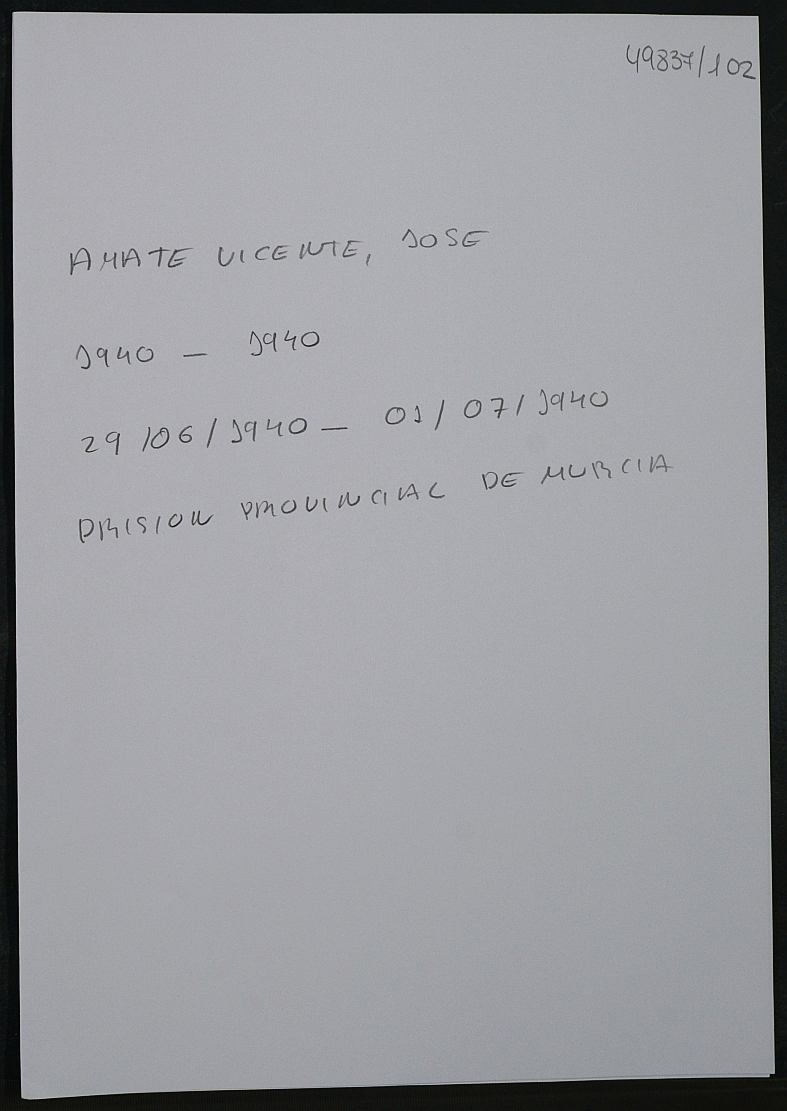 49837/102
AMATE VICENTE, JOSE
1940 - 1940
29/06/1940 - 01/07/1940
PRISION PROVINCIAL DE MURCIA